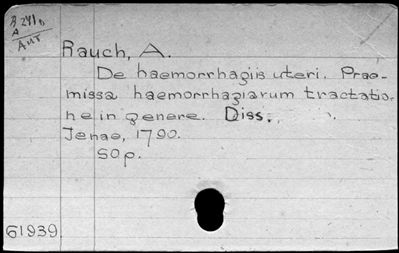 Rauch, A.
De haemorrhagiis uteri. Prae-
missa haemorrhagiarum tractatio-
ne in genere. Diss.
Jenae, 1790.
50 p.
61939.